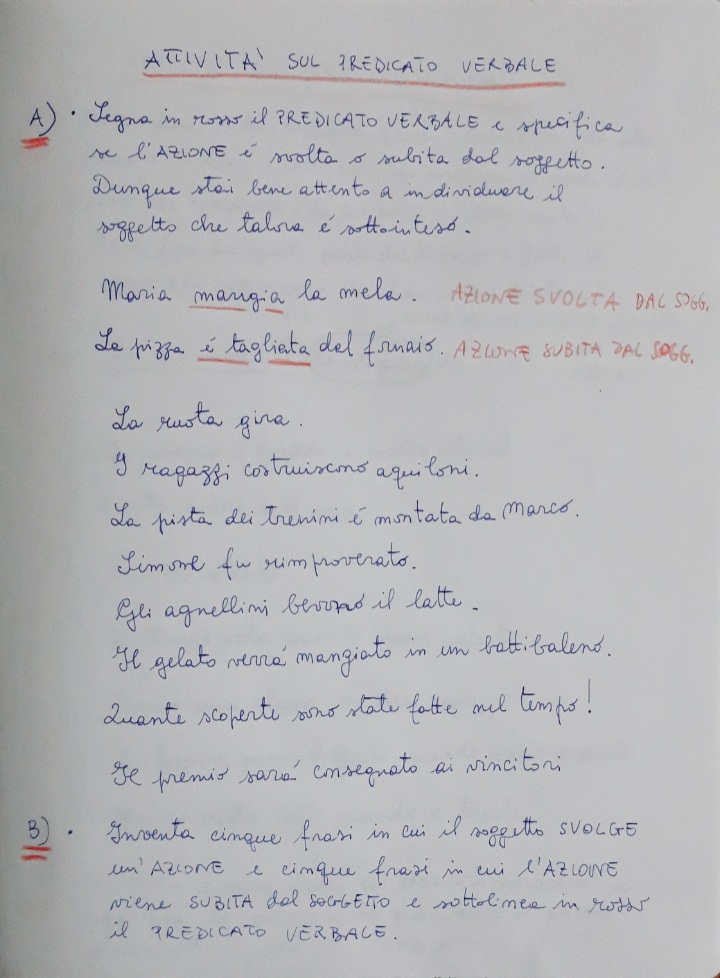 ATTIVITA' SUL PREDICATO VERBALE
A) • Segna in rosso il PREDICATO VERBALE e specifica
se l'AZIONE é svolta o subita dal soggetto.
Dunque stai bene attento a individuare il
soggetto che talora é sottointeso.
Maria mangia la mela. AZIONE SVOLTA DAL SOGG.
La pizza é tagliata dal fornaio. AZIONE SUBITA DAL SOGG.
La ruota gira.
I ragazzi costruiscono aquiloni.
La pista dei trenini é montata da Marco.
Simone fu rimproverato.
Gli agnellini bevono il latte.
Il gelato verrá mangiato in un battibaleno.
Quante scoperte sono state fatte nel tempo!
Il premio sará consegnato ai vincitori
B) • Inventa cinque frasi in cui il soggetto SVOLGE
un'AZIONE e cinque frasi in cui l'AZIONE
viene SUBITA dal SOGGETTO e sottolinea in rosso
il PREDICATO VERBALE.